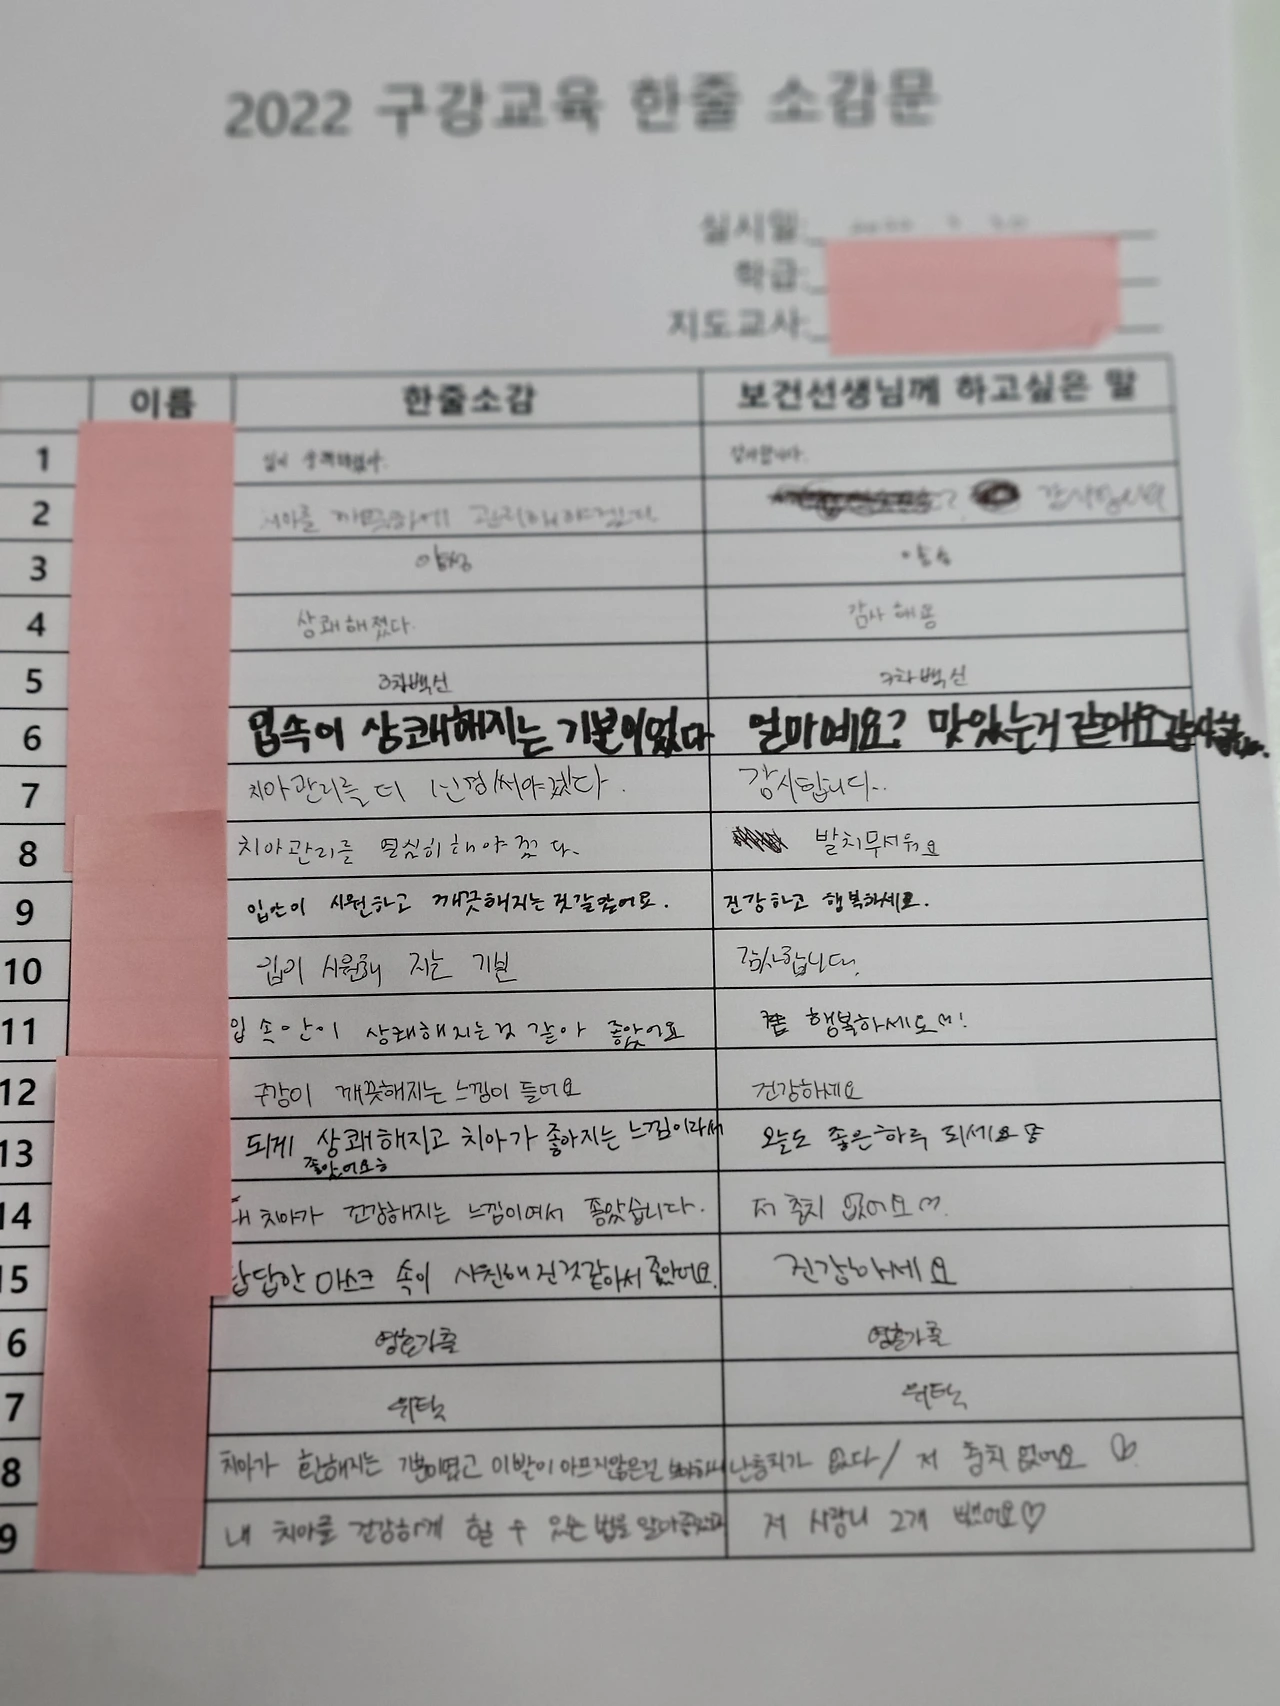 2022 구강교육 한줄 소감문
실시일:
학급:
지도교사:
이름 한줄소감 보건선생님께 하고싶은 말
1 입이 상쾌해졌다. 감사합니다.
2 치아를 깨끗하게 관리해야겠다. 감사합니다
3
4 상쾌해졌다. 감사해용
5 3차백신 3차백신
6 입속이 상쾌해지는 기분이었다 얼마예요? 맛있는거 같애요
7 치아관리를 더 신경써야겠다. 감사합니다..
8 치아관리를 열심히해야겠다. 발치무서워요
9 입안이 시원하고 깨끗해지는것같았어요. 건강하고 행복하세요.
10 입이 시원해 지는 기분 감사합니다.
11 입 속안이 상쾌해지는것 같아 좋았어요 행복하세요!
12 구강이 깨끗해지는 느낌이 들어요 건강하세요
13 되게 상쾌해지고 치아가 좋아지는 느낌이라서 오늘도 좋은하루 되세요
좋았어요ㅎ
14 내 치아가 건강해지는 느낌이여서 좋았습니다. 저 충치 없어요
15 답답한 마스크 속이 시원해진것같아서 좋았어요. 건강하세요
6 영혼가출 영혼가출
7 위탁 위탁
8 치아가 환해지는 기분이였고 이빨이 아프지않은걸 난충치가 없다 / 저 충치 없어요 ♡
9 내 치아를 건강하게 할 수 있는 법을 저 사랑니 2개 뺐어요♡